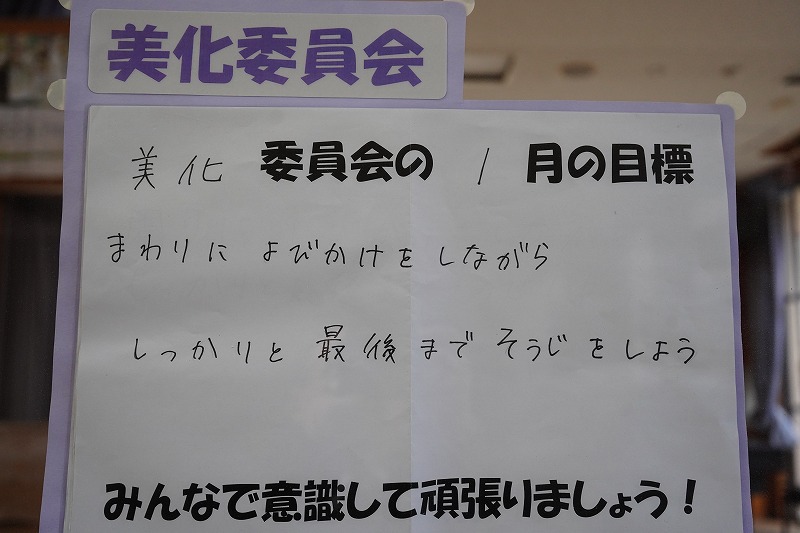 美化委員会
美化 委員会の 1 月の目標
まわりに よびかけを しながら
しっかりと 最後まで そうじをしよう
みんなで意識して頑張りましょう！